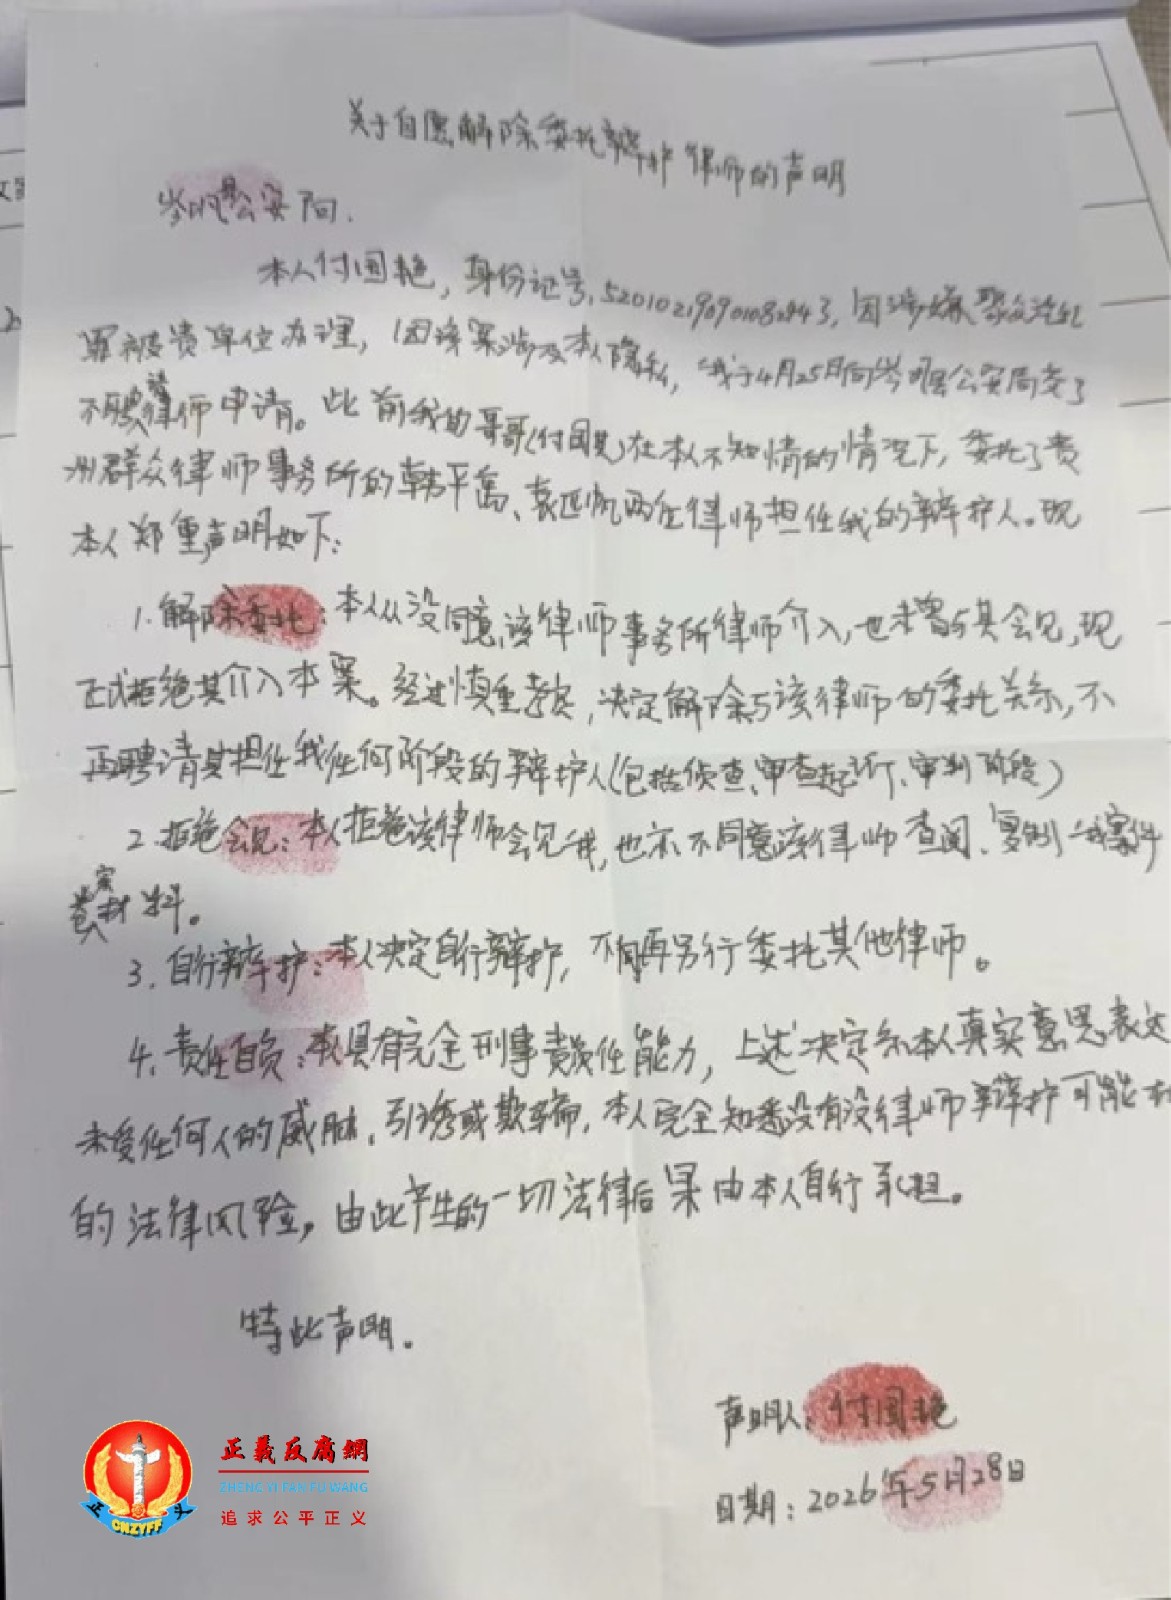 关于自愿解除委托辩护律师的声明
岑巩县公安局.
本人付国艳，身份证号，520102196901082443，因涉嫌聚众淫乱
罪被贵单位办理，因该案涉及本人隐私，我于4月25日向岑巩县公安局交了
不聘请律师申请。此前我的哥哥(付国其)在本人不知情的情况下，委托了贵
州群众律师事务所的韩平禹、袁廷帆两位律师担任我的辩护人。现
本人郑重声明如下：
1.解除委托：本人从没同意该律师事务所律师介入，也未曾与其会见，现
正式拒绝其介入本案。经过慎重考虑，决定解除与该律师的委托关系，不
再聘请其担任我任何阶段的辩护人(包括侦查、审查起诉、审判阶段)
2.拒绝会见：本人拒绝该律师会见我，也亦不同意该律师查阅、复制我案件
卷宗材料。
3.自行辩护：本人决定自行辩护，不再另行委托其他律师。
4.责任自负：本人具有完全刑事责任能力，上述决定系本人真实意思表达
未受任何人的威胁、引诱或欺骗，本人完全知悉没有没律师辩护可能
的法律风险。由此产生的一切法律后果由本人自行承担。
特此声明。
声明人：付国艳
日期：2026年5月28日
正義反腐網
ZHENG YI FAN FU WANG
追求公平正义
正 义
CNZYFF